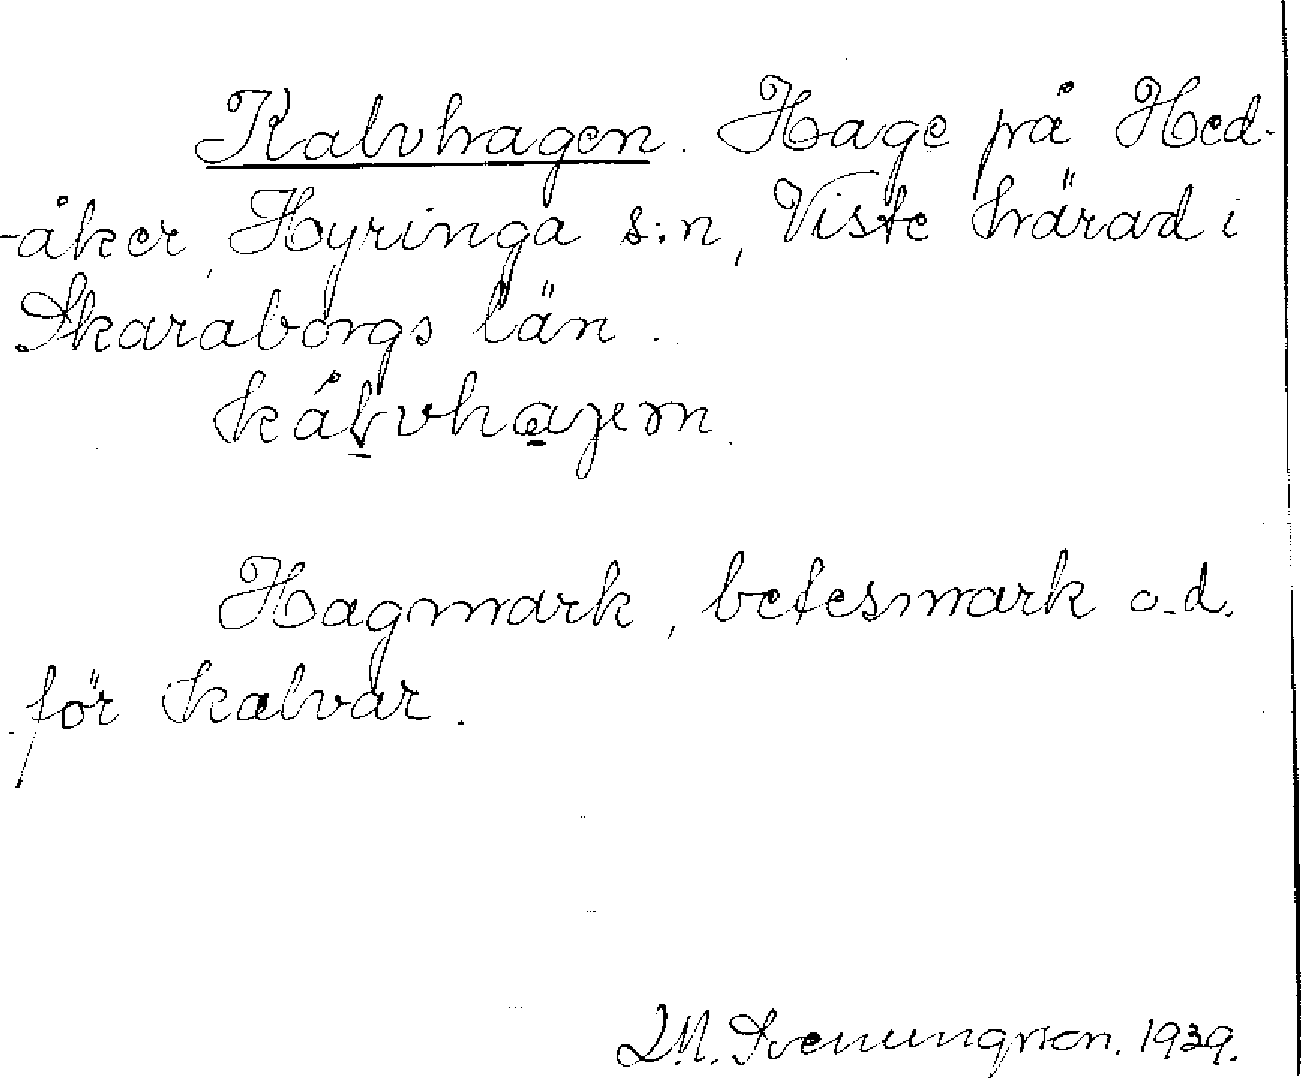 Kalvhagen. Hage på Hed-
-åker, Hyringa s:n, Viste härad i
Skaraborgs län.
kálvhagem.
Hagmark, betesmark o.d.
för kalvar.
M. Svenungson. 1939.